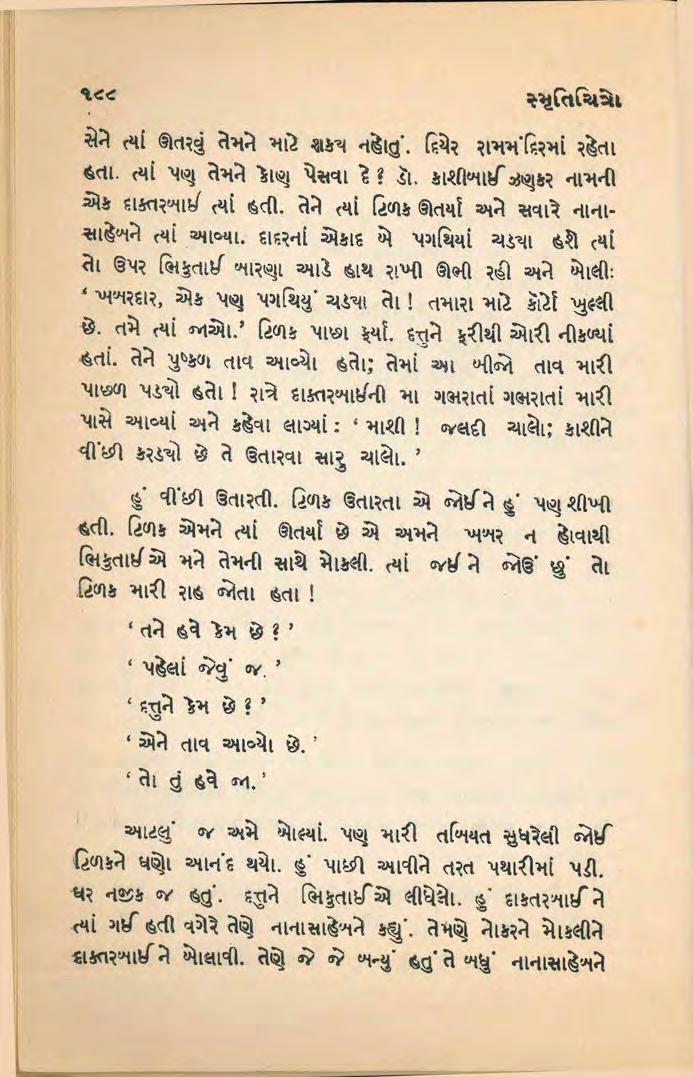 ૧૮૮ સ્મૃતિચિત્રો
સેને ત્યાં ઊતરવું તેમને માટે શકય નહોતું. દિયેર રામમંદિરમાં રહેતા
હતા. ત્યાં પણ તેમને કોણ પેસવા દે ? ડૉ. કાશીબાઈ ઝણુકર નામની
એક દાક્તરબાઈ ત્યાં હતી. તેને ત્યાં ટિળક ઊતર્યા અને સવારે નાના-
સાહેબને ત્યાં આવ્યા. દાદરનાં એકાદ બે પગથિયાં ચડયા હશે ત્યાં
તો ઉપર ભિકુતાઈ બારણા આડે હાથ રાખી ઊભી રહી અને બોલીઃ
‘ ખબરદાર, એક પણ પગથિયું ચડયા તો ! તમારા માટે કૉર્ટો ખુલ્લી
છે. તમે ત્યાં જાઓ.’ ટિળક પાછા ફર્યા. દત્તુને ફરીથી ઓરી નીકળ્યાં
હતાં. તેને પુષ્કળ તાવ આવ્યો હતો; તેમાં આ બીજો તાવ મારી
પાછળ પડયો હતો ! રાત્રે દાક્તરબાઈની મા ગભરાતાં ગભરાતાં મારી
પાસે આવ્યાં અને કહેવા લાગ્યાં : ‘ માશી ! જલદી ચાલો; કાશીને
વીંછી કરડયો છે તે ઉતારવા સારુ ચાલો. ’
હું વીંછી ઉતારતી. ટિળક ઉતારતા એ જોઈને હું પણ શીખી
હતી. ટિળક એમને ત્યાં ઊતર્યા છે એ અમને ખબર ન હોવાથી
ભિકુતાઈએ મને તેમની સાથે મોકલી. ત્યાં જઈને જોઉં છું તો
ટિળક મારી રાહ જોતા હતા !
‘ તને હવે કેમ છે ? ’
‘ પહેલાં જેવું જ. ’
‘ દત્તુને કેમ છે ? ’
‘ એને તાવ આવ્યો છે. ’
‘ તો તું હવે જા. ’
આટલું જ અમે બોલ્યાં. પણ મારી તબિયત સુધરેલી જોઈ
ટિળકને ઘણો આનંદ થયો. હું પાછી આવીને તરત પથારીમાં પડી.
ઘર નજીક જ હતું. દત્તુને ભિકુતાઈએ લીધેલો. હું દાકતરબાઈને
ત્યાં ગઈ હતી વગેરે તેણે નાનાસાહેબને કહ્યું. તેમણે નોકરને મોકલીને
દાક્તરબાઈને બોલાવી. તેણે જે જે બન્યું હતું તે બધું નાનાસાહેબને